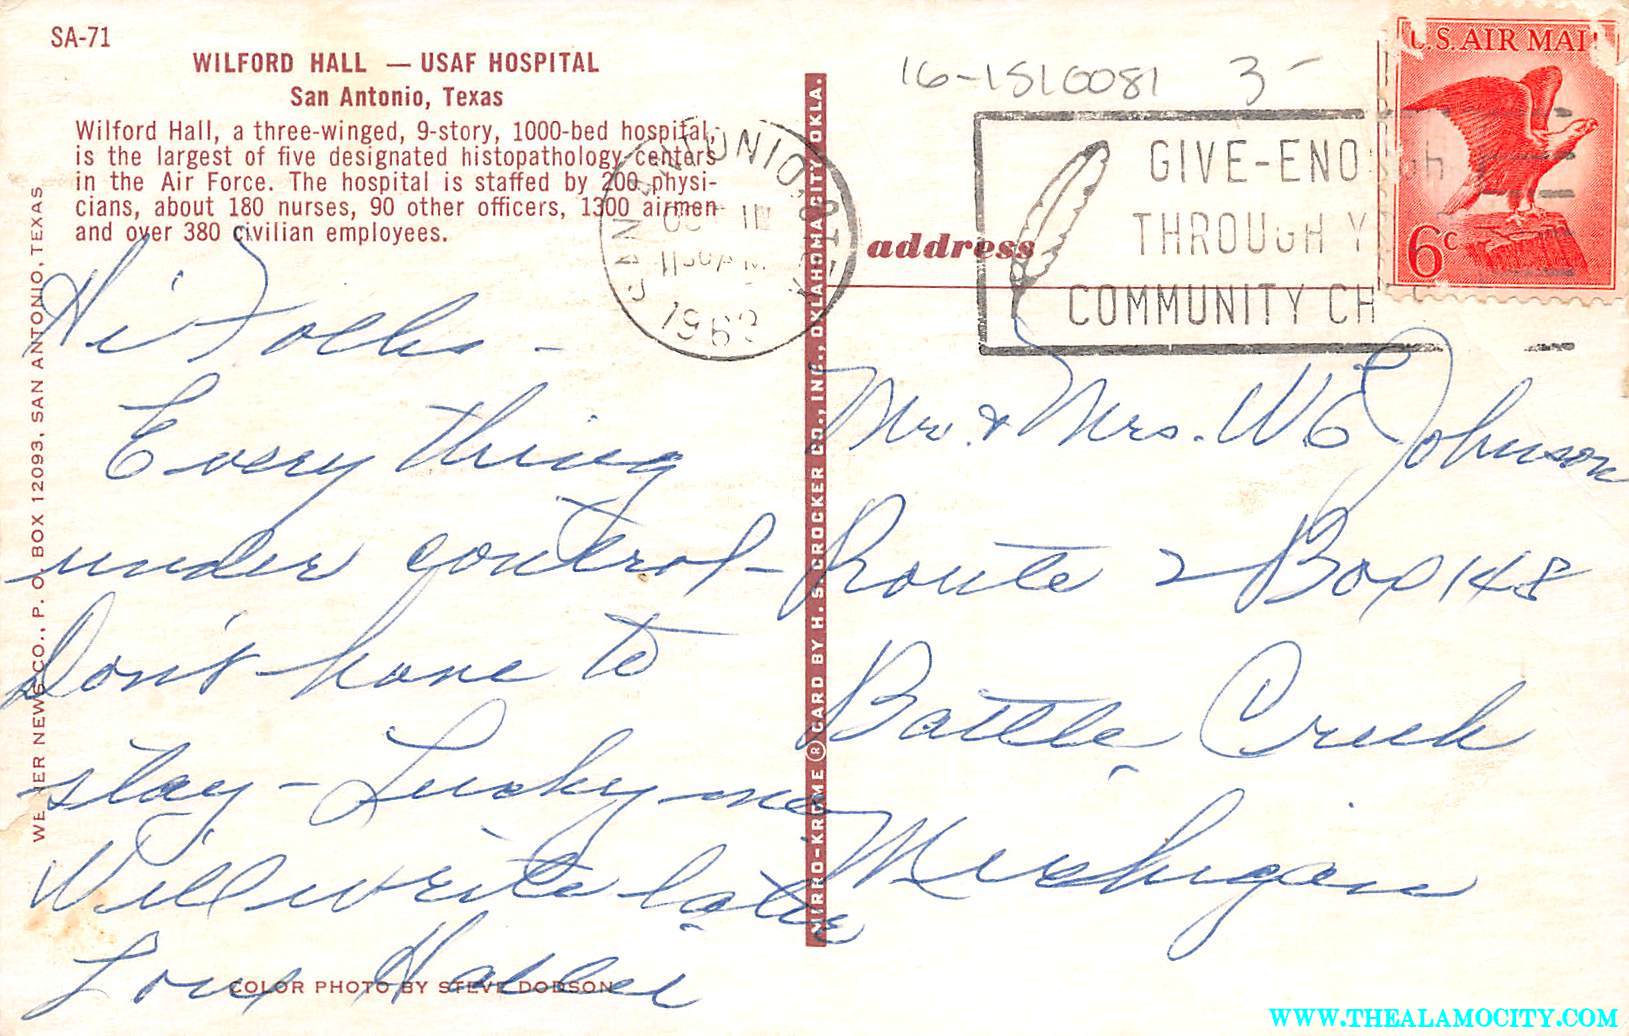 SA-71
WILFORD HALL — USAF HOSPITAL
San Antonio, Texas
Wilford Hall, a three-winged, 9-story, 1000-bed hospital,
is the largest of five designated histopathology centers
in the Air Force. The hospital is staffed by 200 physi-
cians, about 180 nurses, 90 other officers, 1300 airmen
and over 380 civilian employees.
WE NER NEWS CO., P. O. BOX 12093, SAN ANTONIO, TEXAS
Hi Folks -
Everything
under control -
Don't have to
stay - Lucky me
Will write later
Love
COLOR PHOTO BY STEVE DODSON
MIRRO-KROME ® CARD BY H. S. CROCKER CO., INC., OKLAHOMA CITY, OKLA.
SAN ANTONIO
1963
16-1510081 3-
GIVE-ENOUGH
THROUGH Y
COMMUNITY CH
U.S. AIR MAIL
6c
address
Mr. & Mrs. W E Johnson
Route 2 Box 148
Battle Creek
Michigan
WWW.THEALAMOCITY.COM